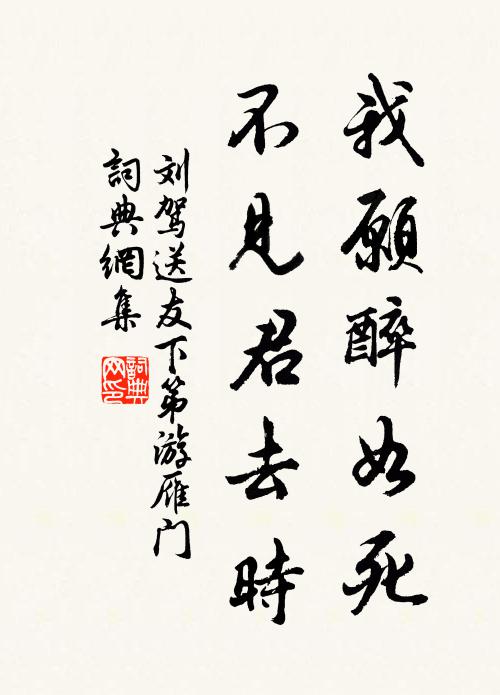 我願醉如死
不見君去時
刘駕送友下第游雁门
詞典網集
詞典網印